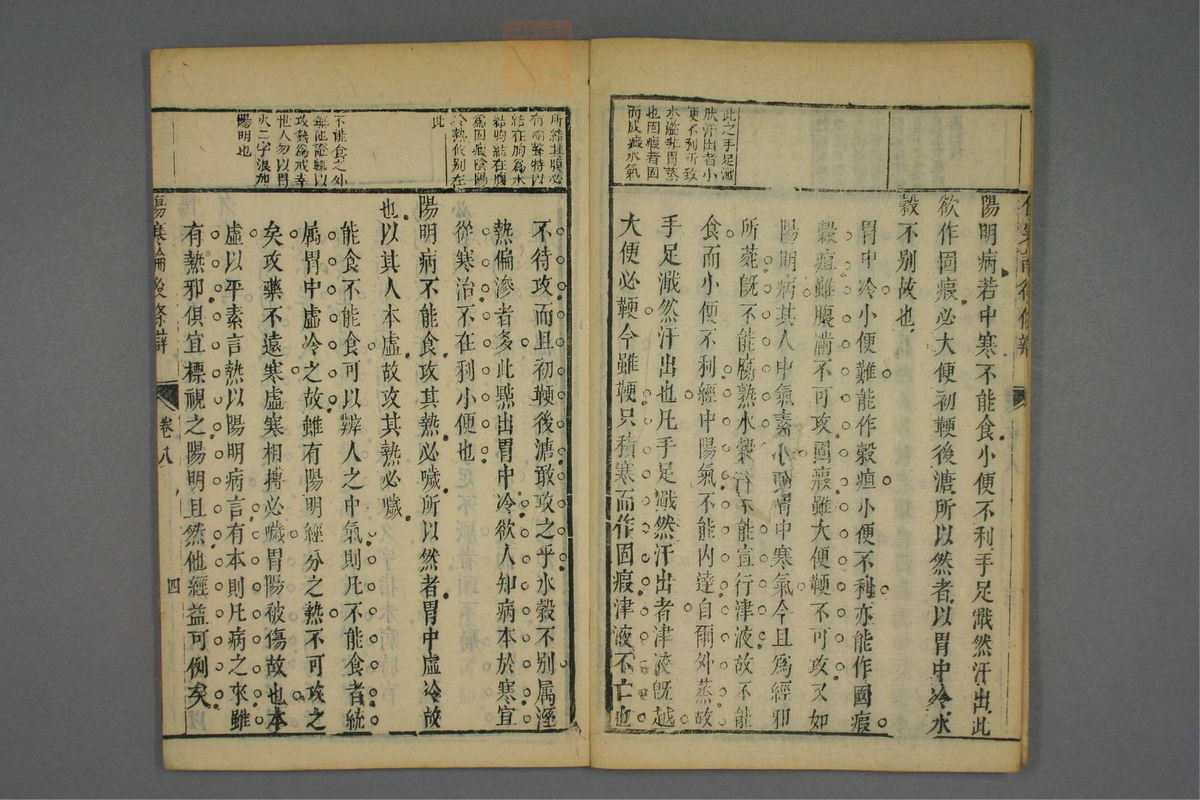 此之手足濈
然汗出者小
便不利所致
水溢非胃蒸
也固瘕者固
而成瘕水氣
陽明病若中寒不能食小便不利手足濈然汗出此
欲作固瘕必大便初鞕後溏所以然者以胃中冷水
穀不別故也
胃中冷小便難能作穀疸小便不利亦能作固瘕
穀疸雖腹滿不可攻固瘕雖大便鞕不可攻又如
陽明病其人中氣素小更胃中寒氣今且爲經邪
所菀旣不能腐熟水穀行不能宣行津液故不能
食而小便不利經中陽氣不能內達自爾外蒸故
手足濈然汗出也凡手足濈然汗出者津液旣越
大便必鞕今雖鞕只積寒而作固瘕津液不亡也
所結其腹必
有響聲特以
結在胸爲水
結胸結在腹
爲固瘕陰陽
冷熱攸別在
此
不能食之外
無他證輒以
攻熱爲戒幸
世人勿以胃
火二字浪加
陽明也
不待攻而且初鞕後溏敢攻之乎水穀不別属溼
熱偏滲者多此點出胃中冷欲人知病本於寒宜
從寒治不在利小便也
陽明病不能食攻其熱必噦所以然者胃中虛冷故
也以其人本虛故攻其熱必噦
能食不能食可以辨人之中氣則凡不能食者統
属胃中虛冷之故雖有陽明經分之熱不可攻之
矣攻藥不遠寒虛寒相搏必噦胃陽被傷故也本
虛以平素言熱以陽明病言有本則凡病之來雖
有熱邪俱宜標視之陽明且然他經益可例矣
傷寒論後條辯
卷八
四